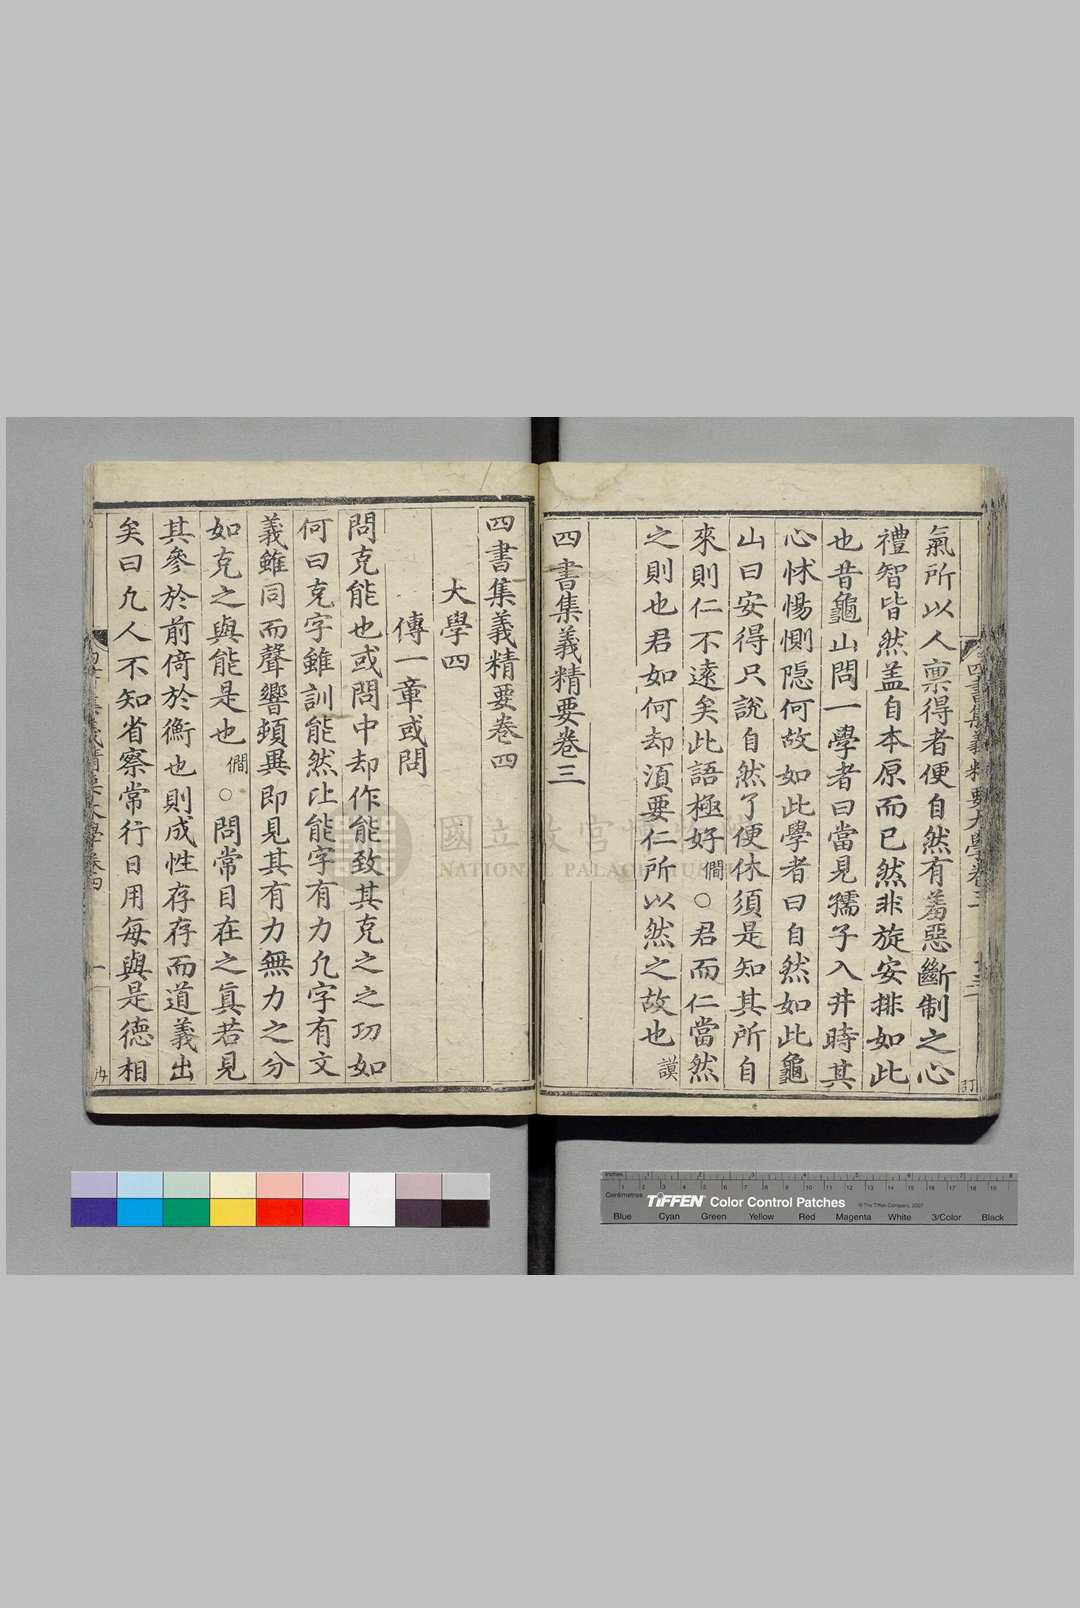 氣所以人禀得者便自然有羞惡斷制之心
禮智皆然盖自本原而已然非旋安排如此
也昔龜山問一學者曰當見孺子入井時其
心怵惕惻隱何故如此學者曰自然如此龜
山曰安得只說自然了便休須是知其所自
來則仁不遠矣此語極好僩○君而仁當然
之則也君如何却湏要仁所以然之故也謨
四書集義精要卷三
四書集義精要卷四
大學四
傳一章或問
問克能也或問中却作能致其克之之功如
何曰克字雖訓能然比能字有力凢字有文
義雖同而聲響頓異即見其有力無力之分
如克之與能是也僩○問常目在之眞若見
其參於前倚於衡也則成性存存而道義出
矣曰凢人不知省察常行日用每與是德相
國立故宮博物院
NATIONAL PALACE MUSEUM
Inches
Centimetres
TIFFEN Color Control Patches
© The Tiffen Company, 2007
Blue Cyan Green Yellow Red Magenta White 3/Color Black